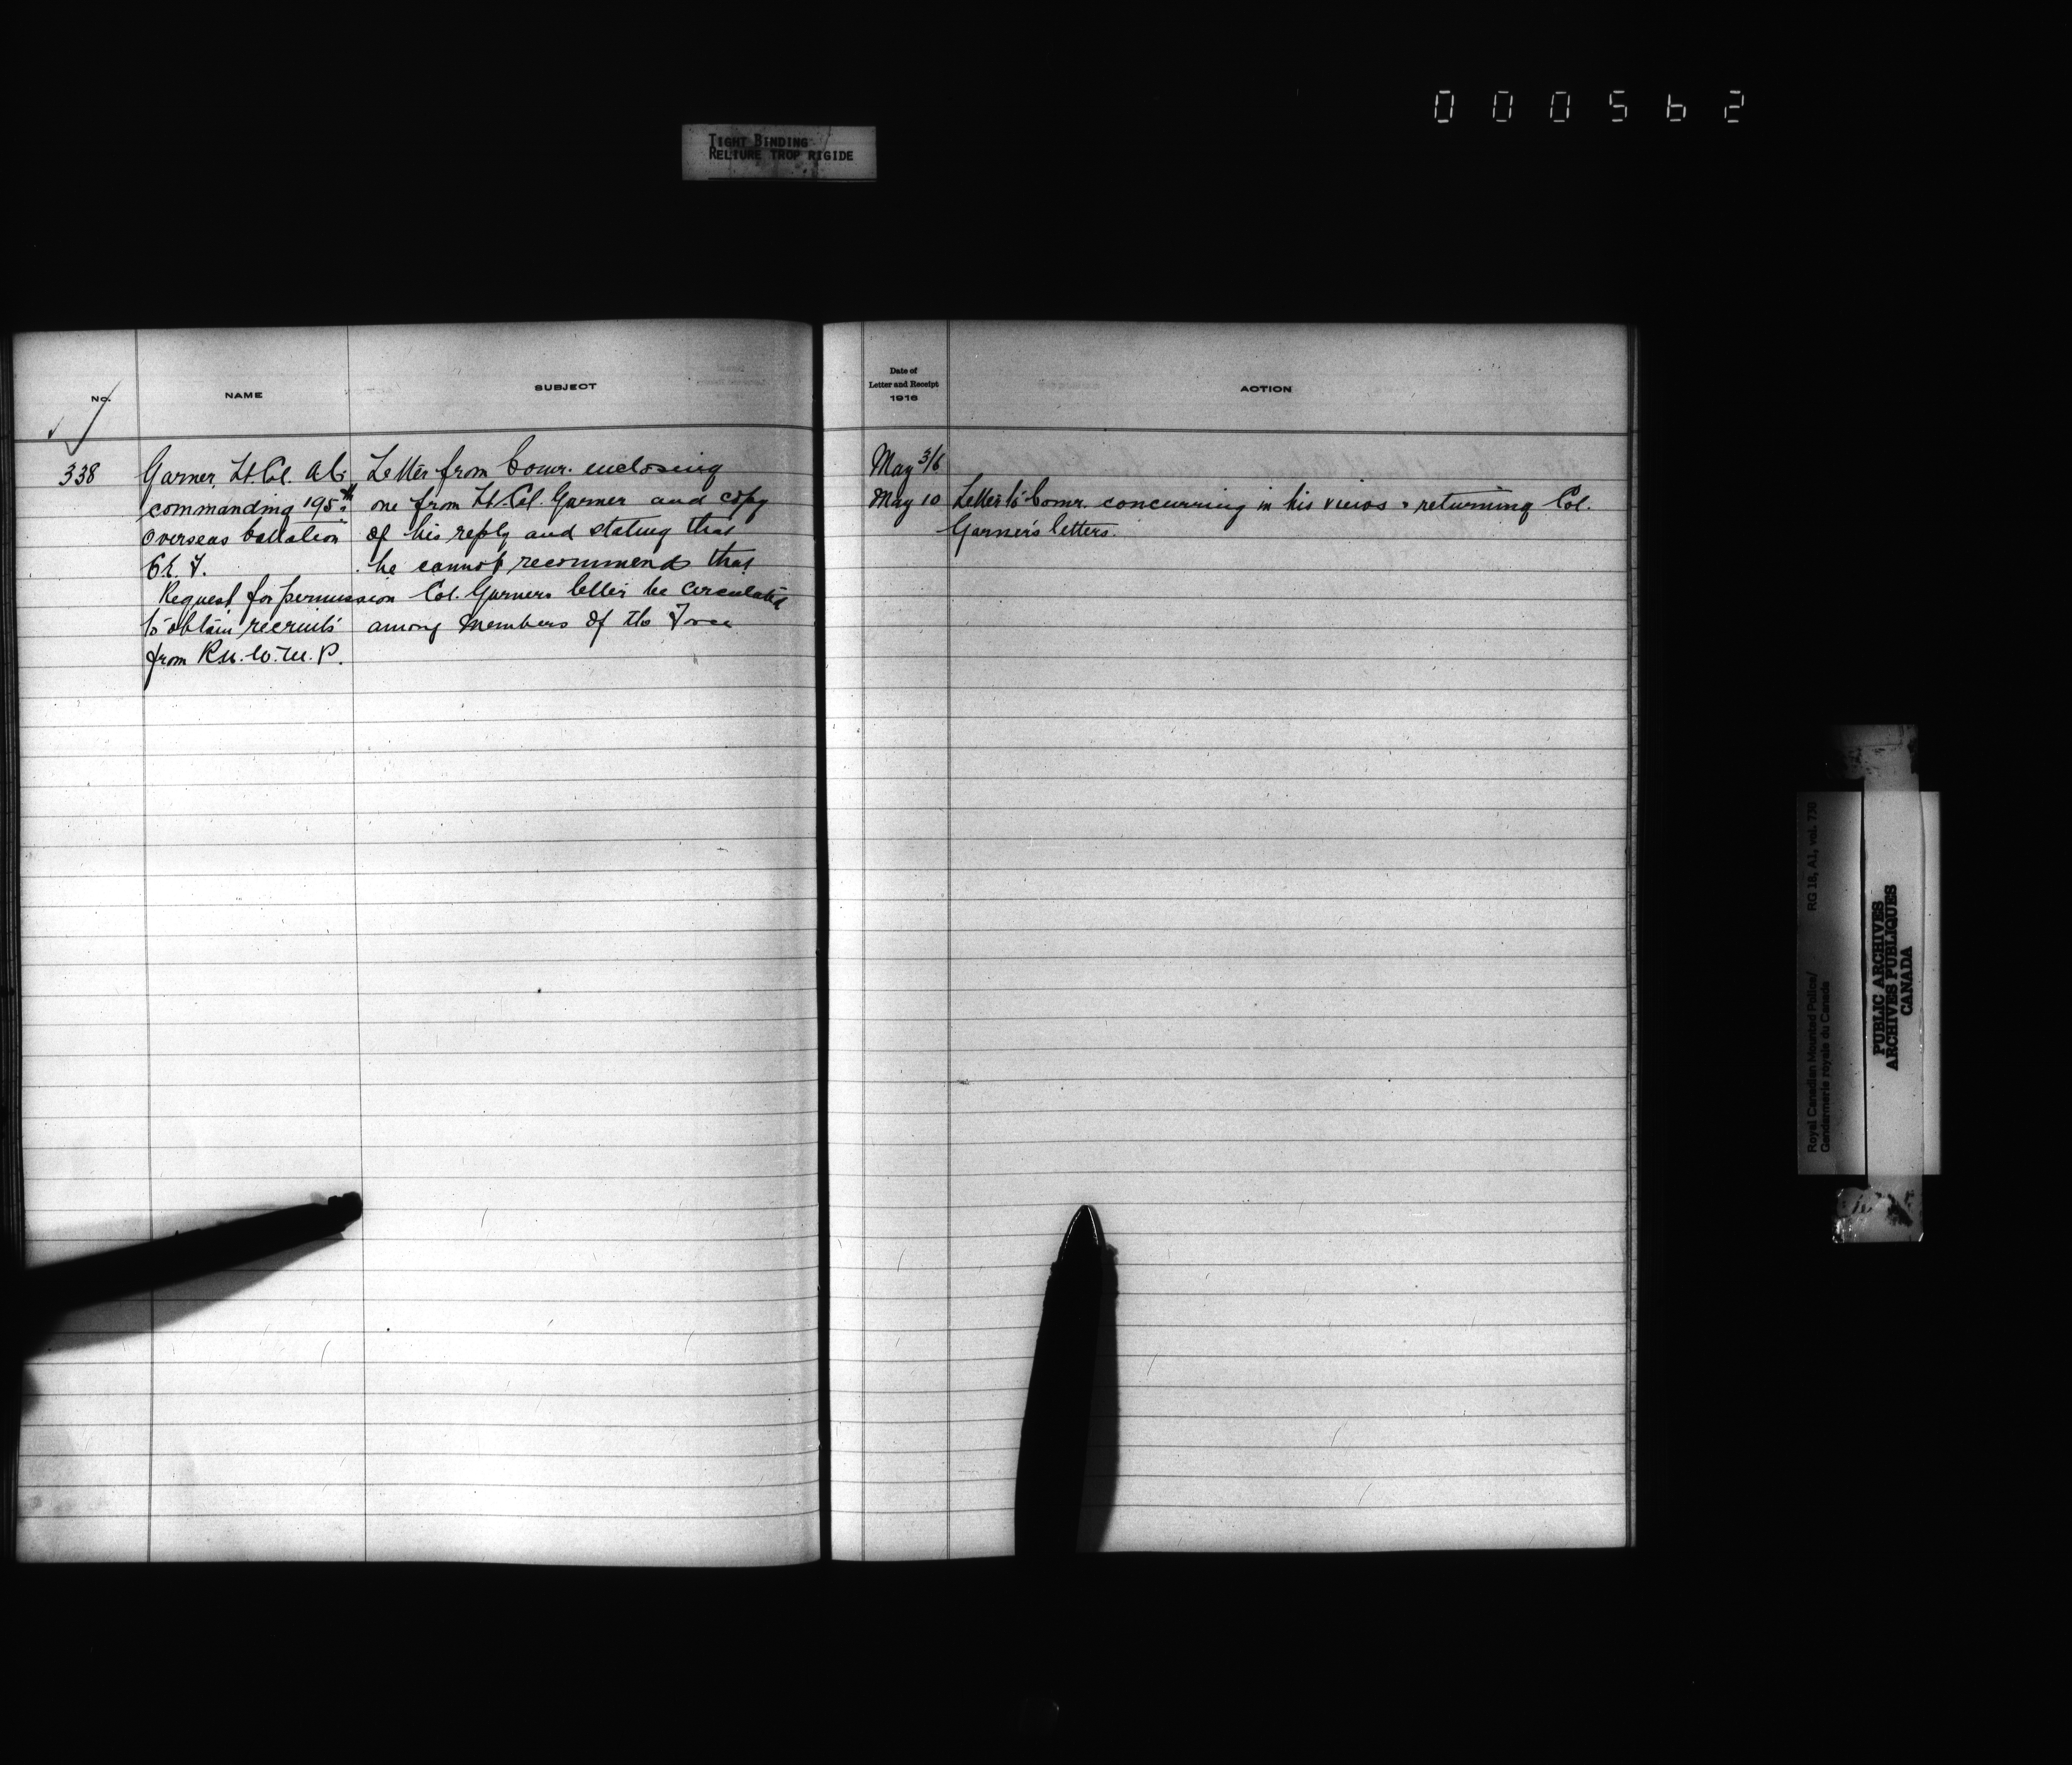 000562
TIGHT BINDING
RELIURE TROP RIGIDE
No.
NAME
SUBJECT
Date of
Letter and Receipt
1916
ACTION
338
Garner, Lt. Col. A.C.
commanding 195th
Overseas battalion
C.E.F.
Request for permission
to obtain recruits
from R.N.W.M.P.
Letter from Comr. enclosing
one from Lt. Col. Garner and copy
of his reply and stating that
he cannot recommend that
Col. Garners letter be circulated
among members of the Force
May 3/6
May 10
Letter to Comr. concurring in his views & returning Col.
Garner's letters.
Royal Canadian Mounted Police/
Gendarmerie royale du Canada
RG 18, A1, vol. 730
PUBLIC ARCHIVES
ARCHIVES PUBLIQUES
CANADA